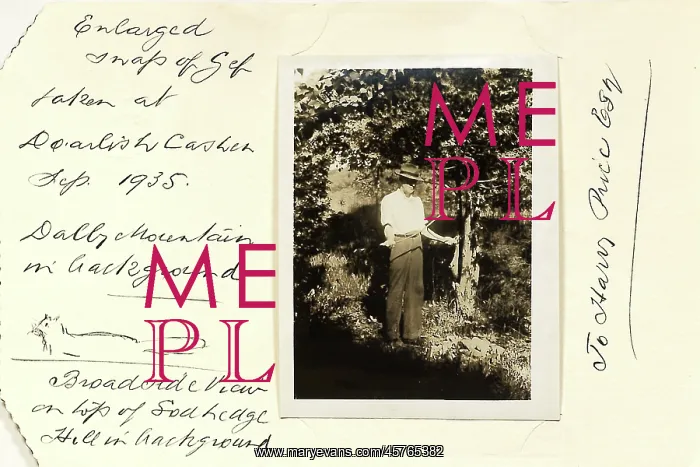 Enlarged
snap of Gef
taken at
Doarlish Cashen
Sep. 1935.
Dalby Mountain
in background
Broadside View
on top of Sod hedge
Hill in background
To Harry Price Esq
ME
PL
ME
PL
www.maryevans.com/45765382